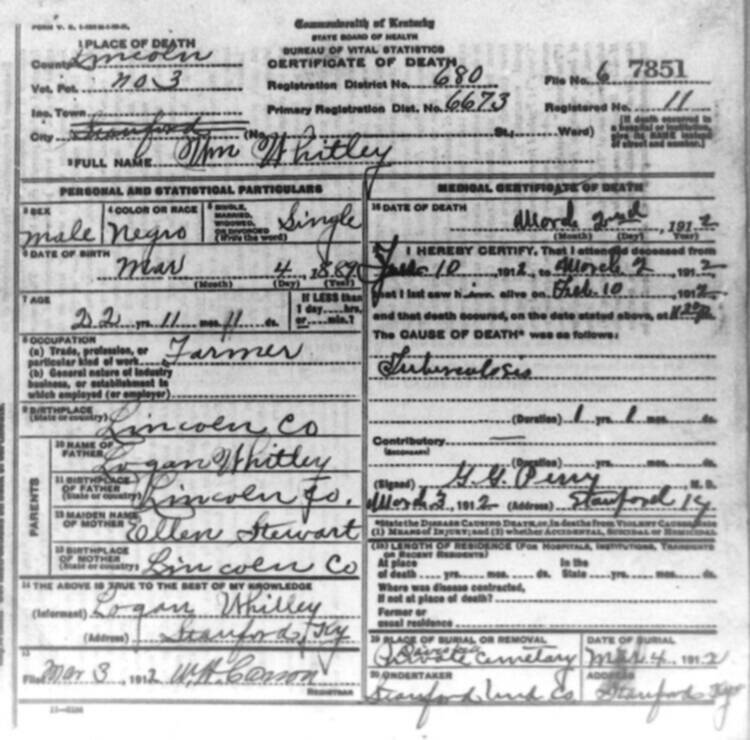 Commonwealth of Kentucky
STATE BOARD OF HEALTH
BUREAU OF VITAL STATISTICS
CERTIFICATE OF DEATH
1 PLACE OF DEATH
County Lincoln
Vot. Pct. no 3
Inc. Town
City Stanford (No. St.; Ward)
Registration District No. 680
Primary Registration Dist. No. 6673
File No. 6 7851
Registered No. 11
[If death occurred in a hospital or institution, give its NAME instead of street and number.]
2 FULL NAME Wm Whitley
PERSONAL AND STATISTICAL PARTICULARS
3 SEX male
4 COLOR OR RACE Negro
5 SINGLE, MARRIED, WIDOWED, OR DIVORCED (Write the word) Single
6 DATE OF BIRTH
Mar 4 1889
(Month) (Day) (Year)
7 AGE
22 yrs. 11 mos. 11 ds.
If LESS than 1 day....hrs. or....min.?
8 OCCUPATION
(a) Trade, profession, or particular kind of work Farmer
(b) General nature of industry business, or establishment in which employed (or employer)
9 BIRTHPLACE (State or country) Lincoln Co
PARENTS
10 NAME OF FATHER Logan Whitley
11 BIRTHPLACE OF FATHER (State or country) Lincoln Co.
12 MAIDEN NAME OF MOTHER Ellen Stewart
13 BIRTHPLACE OF MOTHER (State or country) Lincoln Co
14 THE ABOVE IS TRUE TO THE BEST OF MY KNOWLEDGE
(Informant) Logan Whitley
(Address) Stanford, Ky
15
Filed Mar 3, 1912 W.H. Carson
REGISTRAR
MEDICAL CERTIFICATE OF DEATH
16 DATE OF DEATH
March 2nd 1912
(Month) (Day) (Year)
I HEREBY CERTIFY, That I attended deceased from
10 1912, to March 2, 1912
that I last saw him alive on Feb. 10, 1912
and that death occurred, on the date stated above, at
The CAUSE OF DEATH* was as follows:
Tuberculosis
(Duration) 1 yrs. 1 mos. ds.
Contributory —
(SECONDARY)
(Duration) yrs. mos. ds.
(Signed) G.G. Perry M. D.
March 3, 1912 (Address) Stanford Ky
*State the DISEASE CAUSING DEATH, or, in deaths from VIOLENT CAUSES, state (1) MEANS OF INJURY; and (2) whether ACCIDENTAL, SUICIDAL or HOMICIDAL
(18) LENGTH OF RESIDENCE (FOR HOSPITALS, INSTITUTIONS, TRANSIENTS OR RECENT RESIDENTS)
At place of death yrs. mos. ds. In the State yrs. mos. ds.
Where was disease contracted, If not at place of death?
Former or usual residence
19 PLACE OF BURIAL OR REMOVAL
Private Cemetary
DATE OF BURIAL
Mar 4, 1912
20 UNDERTAKER
Stanford Und Co
ADDRESS
Stanford Ky